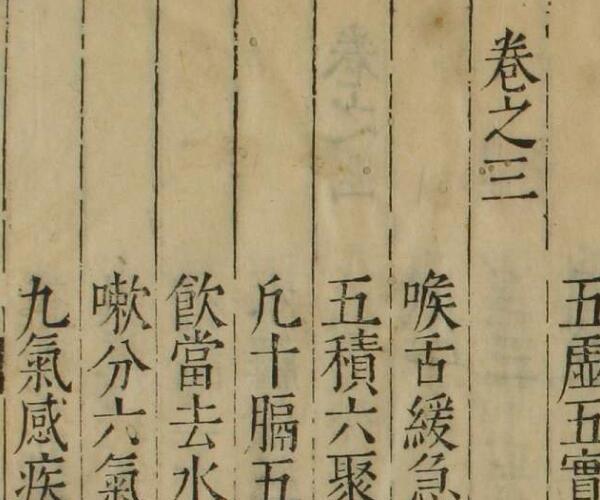 五虛五實
卷之三
喉舌緩急
五積六聚
凡十膈五
飲當去水
嗽分六氣
九氣感疾